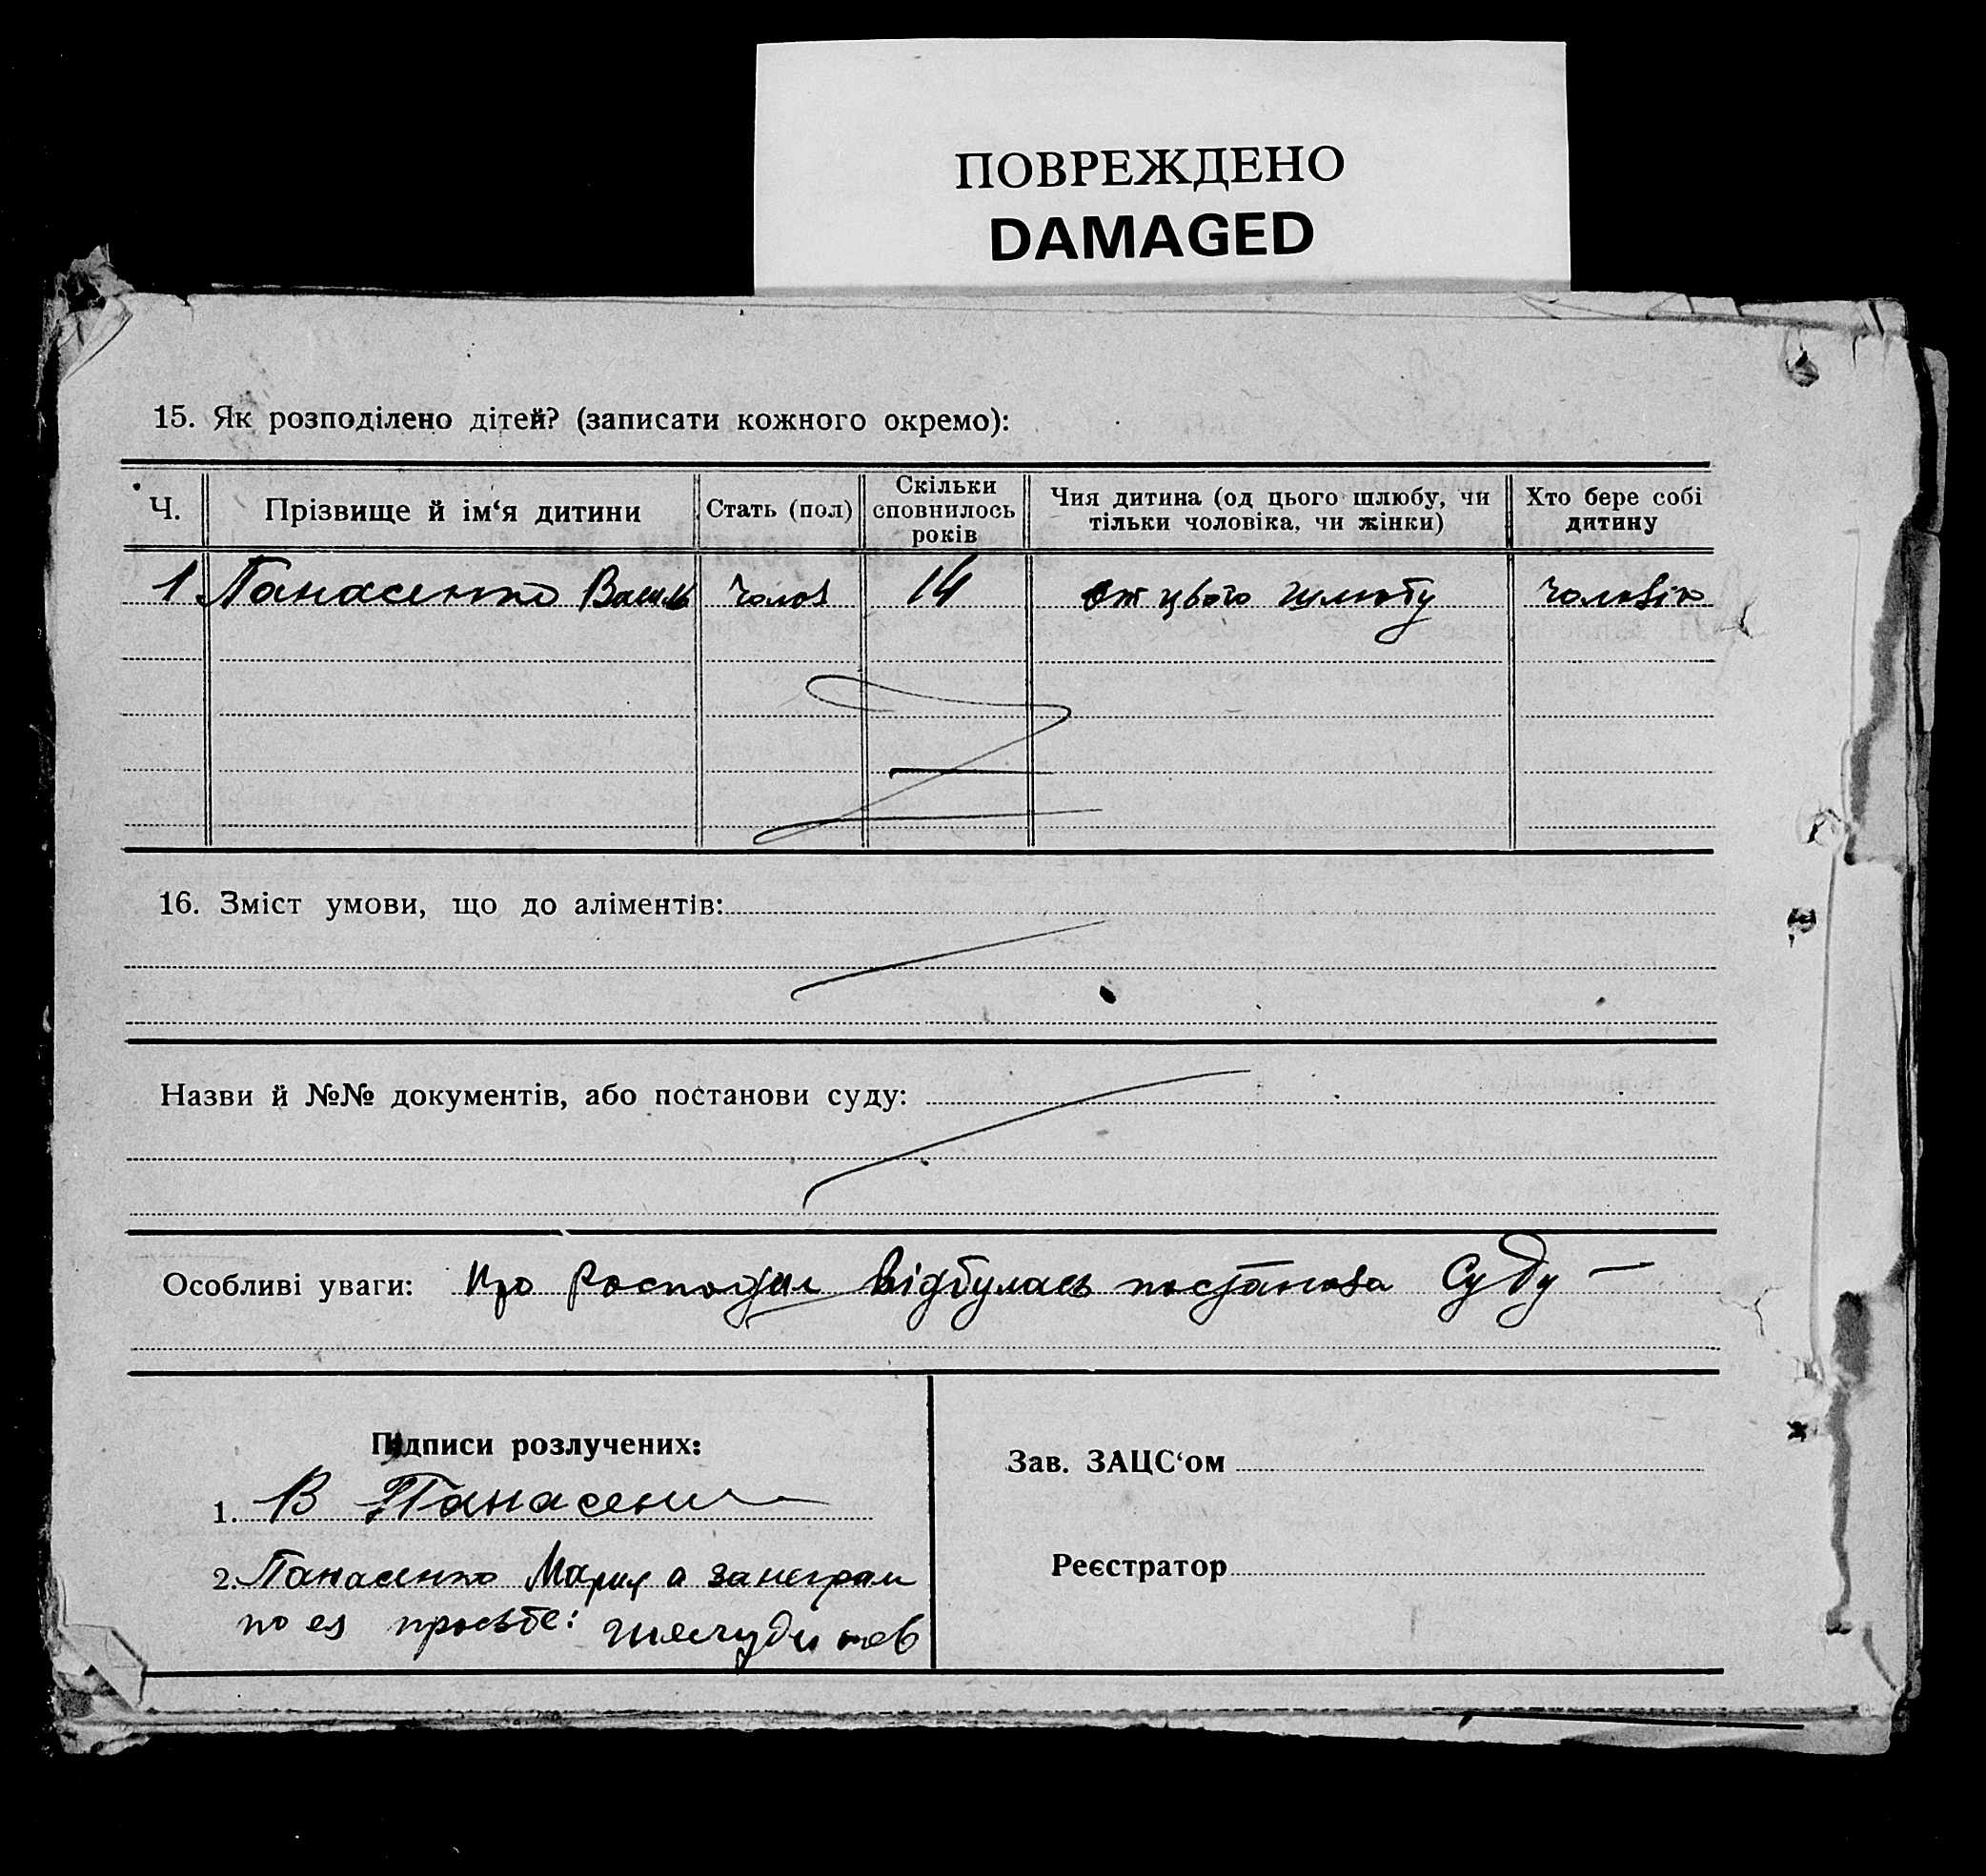 ПОВРЕЖДЕНО
DAMAGED
15. Як розподілено дітей? (записати кожного окремо):
Ч. Прізвище й ім‘я дитини Стать (пол) Скільки сповнилось років Чия дитина (од цього шлюбу, чи тільки чоловіка, чи жінки) Хто бере собі дитину
1 Панасенко Василь чолов 14 от цього шлюбу чоловік
16. Зміст умови, що до аліментів:
Назви й №№ документів, або постанови суду:
Особливі уваги: Про росподіл відбулась постанова Суду —
Підписи розлучених:
1. В Панасенко
2. Панасенко Мария а за неграм
по ея просьбе:
Зав. ЗАЦС‘ом
Реєстратор